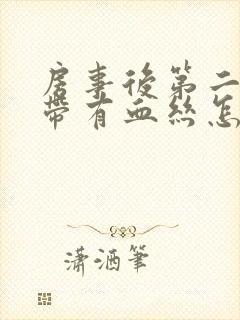 房事後第二
帶有血絲怎
瀟洒筆